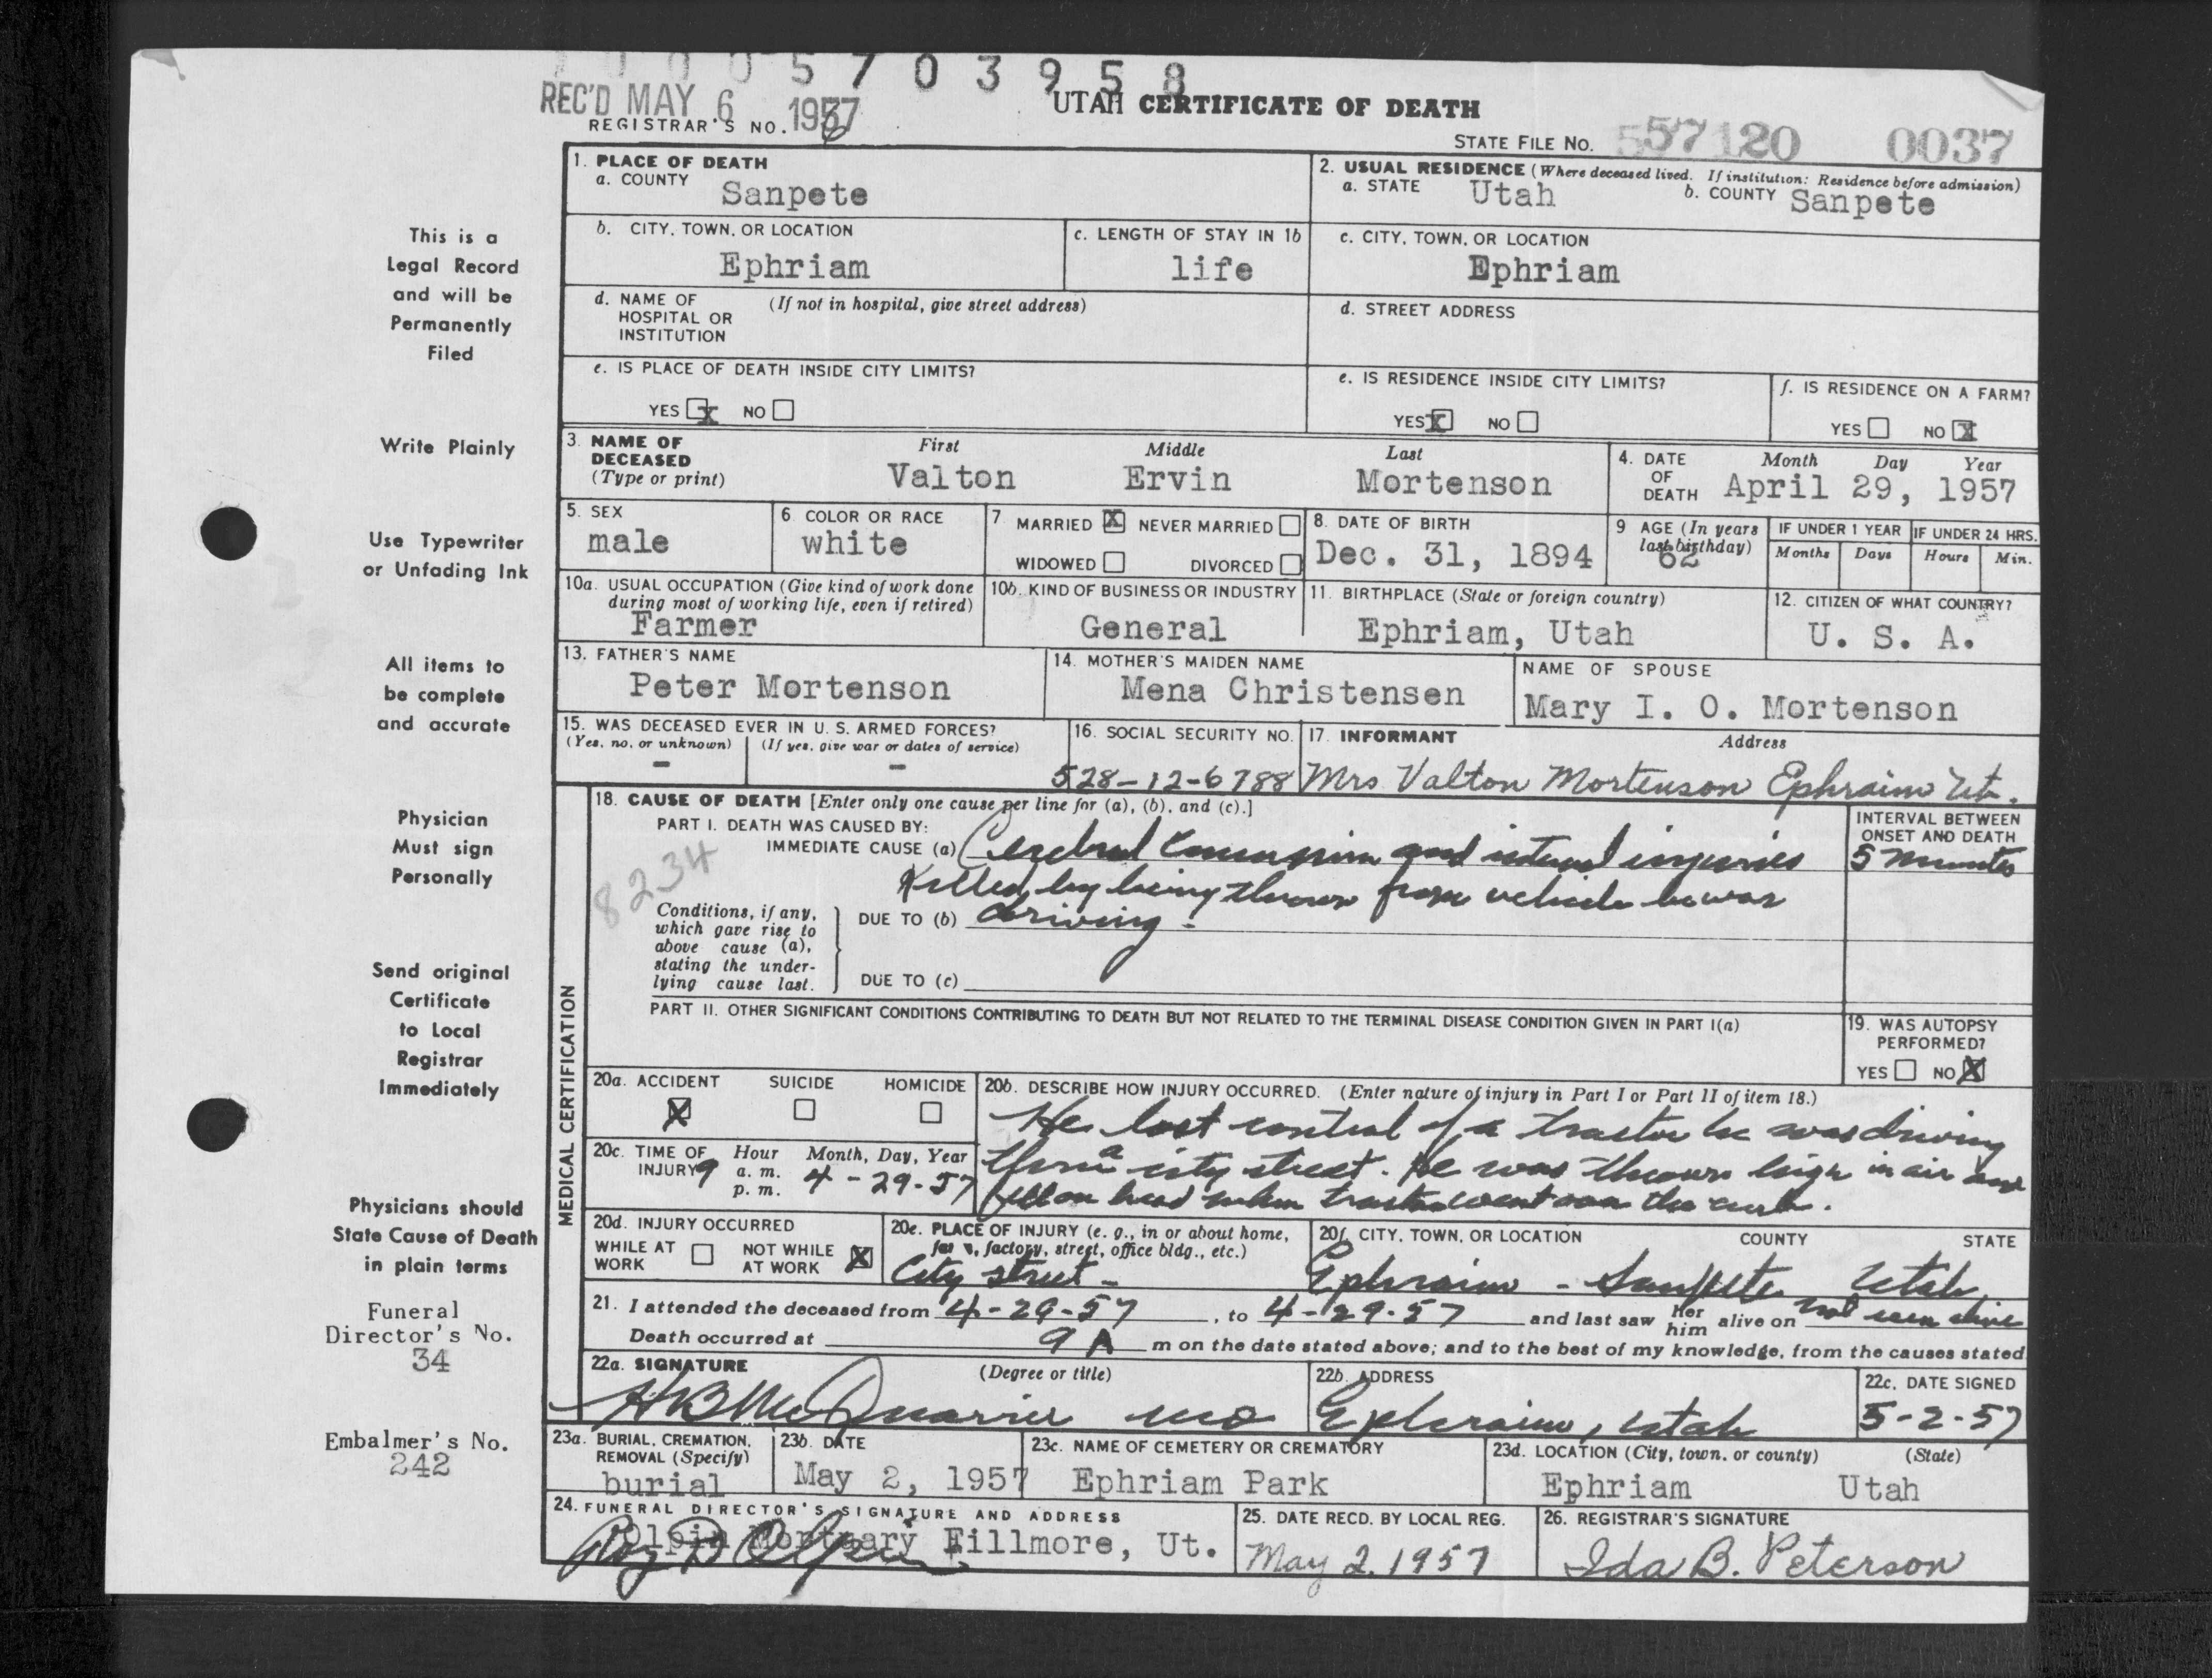 0 0 0 5 7 0 3 9 5 8
REC'D MAY 6 1957
UTAH CERTIFICATE OF DEATH
REGISTRAR'S NO. 6
STATE FILE NO. 57 120 0037
This is a
Legal Record
and will be
Permanently
Filed
Write Plainly
Use Typewriter
or Unfading Ink
All items to
be complete
and accurate
Physician
Must sign
Personally
Send original
Certificate
to Local
Registrar
Immediately
Physicians should
State Cause of Death
in plain terms
Funeral
Director's No.
34
Embalmer's No.
242
1. PLACE OF DEATH
a. COUNTY Sanpete
2. USUAL RESIDENCE (Where deceased lived. If institution: Residence before admission)
a. STATE Utah b. COUNTY Sanpete
b. CITY, TOWN, OR LOCATION
Ephriam
c. LENGTH OF STAY IN 1b
life
c. CITY, TOWN, OR LOCATION
Ephriam
d. NAME OF HOSPITAL OR INSTITUTION (If not in hospital, give street address)
d. STREET ADDRESS
e. IS PLACE OF DEATH INSIDE CITY LIMITS?
YES X NO
e. IS RESIDENCE INSIDE CITY LIMITS?
YES X NO
f. IS RESIDENCE ON A FARM?
YES NO X
3. NAME OF DECEASED (Type or print)
First Middle Last
Valton Ervin Mortenson
4. DATE OF DEATH Month Day Year
April 29, 1957
5. SEX
male
6. COLOR OR RACE
white
7. MARRIED X NEVER MARRIED
WIDOWED DIVORCED
8. DATE OF BIRTH
Dec. 31, 1894
9 AGE (In years last birthday)
62
IF UNDER 1 YEAR IF UNDER 24 HRS.
Months Days Hours Min.
10a. USUAL OCCUPATION (Give kind of work done during most of working life, even if retired)
Farmer
10b. KIND OF BUSINESS OR INDUSTRY
General
11. BIRTHPLACE (State or foreign country)
Ephriam, Utah
12. CITIZEN OF WHAT COUNTRY?
U. S. A.
13. FATHER'S NAME
Peter Mortenson
14. MOTHER'S MAIDEN NAME
Mena Christensen
NAME OF SPOUSE
Mary I. O. Mortenson
15. WAS DECEASED EVER IN U. S. ARMED FORCES?
(Yes, no, or unknown) (If yes, give war or dates of service)
- -
16. SOCIAL SECURITY NO.
528-12-6788
17. INFORMANT Address
Mrs Valton Mortenson Ephraim Ut.
MEDICAL CERTIFICATION
18. CAUSE OF DEATH [Enter only one cause per line for (a), (b), and (c).]
PART I. DEATH WAS CAUSED BY:
IMMEDIATE CAUSE (a) Cerebral Concussion and internal injuries
INTERVAL BETWEEN ONSET AND DEATH
5 minutes
8234
Killed by being thrown from vehicle he was
Conditions, if any, which gave rise to above cause (a), stating the underlying cause last.
DUE TO (b) driving.
DUE TO (c)
PART II. OTHER SIGNIFICANT CONDITIONS CONTRIBUTING TO DEATH BUT NOT RELATED TO THE TERMINAL DISEASE CONDITION GIVEN IN PART I(a)
19. WAS AUTOPSY PERFORMED?
YES NO X
20a. ACCIDENT SUICIDE HOMICIDE
X
20b. DESCRIBE HOW INJURY OCCURRED. (Enter nature of injury in Part I or Part II of item 18.)
He lost control of a tractor he was driving
a city street. He was thrown high in air and
fell on head when tractor went over the curb.
20c. TIME OF INJURY Hour Month, Day, Year
9 a. m. p. m. 4-29-57
20d. INJURY OCCURRED
WHILE AT WORK NOT WHILE AT WORK X
20e. PLACE OF INJURY (e. g., in or about home, farm, factory, street, office bldg., etc.)
City street -
20f. CITY, TOWN, OR LOCATION COUNTY STATE
Ephraim - Sanpete Utah
21. I attended the deceased from 4-29-57, to 4-29-57 and last saw her him alive on not seen alive
Death occurred at 9 A m on the date stated above; and to the best of my knowledge, from the causes stated
22a. SIGNATURE (Degree or title)
HB McQuarrie MD
22b. ADDRESS
Ephraim, Utah
22c. DATE SIGNED
5-2-57
23a. BURIAL, CREMATION, REMOVAL (Specify)
burial
23b. DATE
May 2, 1957
23c. NAME OF CEMETERY OR CREMATORY
Ephriam Park
23d. LOCATION (City, town, or county) (State)
Ephriam Utah
24. FUNERAL DIRECTOR'S SIGNATURE AND ADDRESS
Olpin Mortuary Fillmore, Ut.
25. DATE RECD. BY LOCAL REG.
May 2, 1957
26. REGISTRAR'S SIGNATURE
Ida B. Peterson